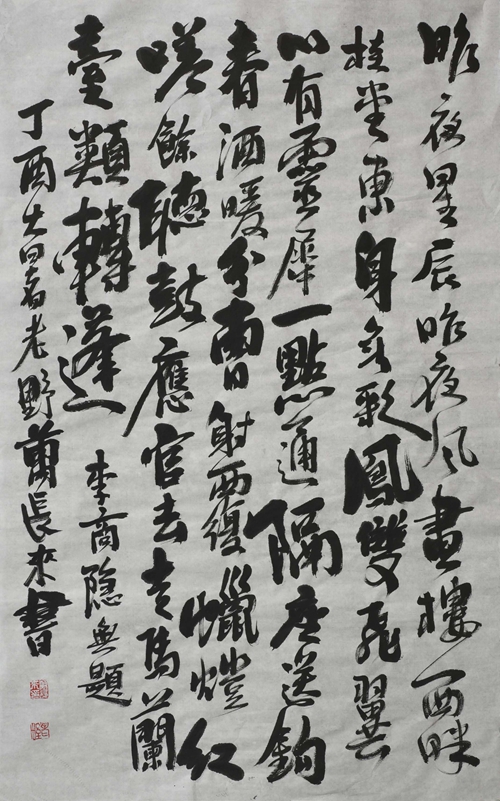 昨夜星辰昨夜风畫樓西畔
桂堂東身無彩鳳雙飛翼
心有靈犀一點通隔座送鉤
春酒暖分曹射覆蠟燈紅
嗟餘聽鼓應官去走馬蘭
臺類轉蓬
李商隐無題
丁酉大暑老野長來書